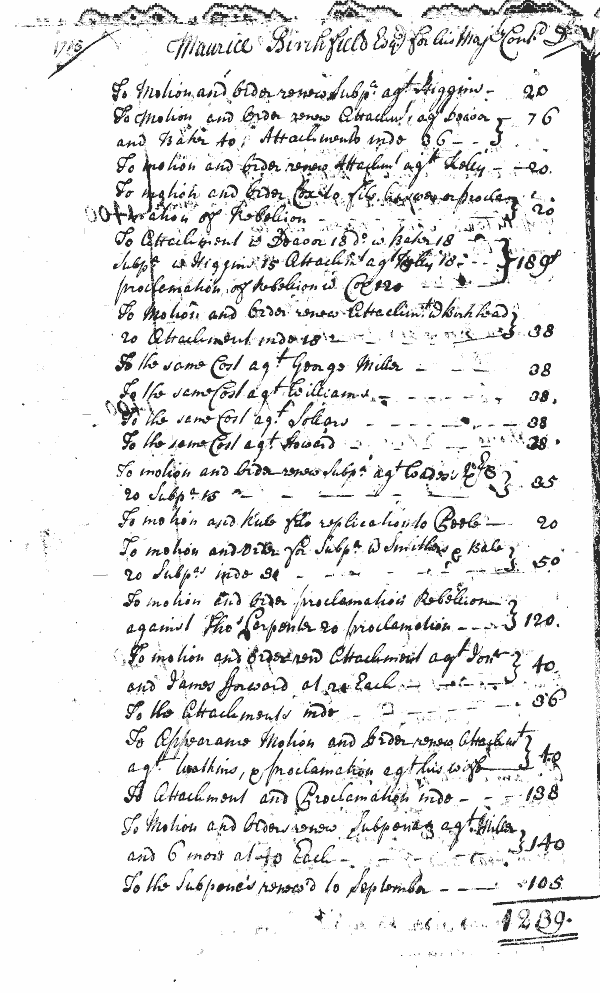 1713 Maurice Birchfield Esqr for his Majts Dr
To Motion and order renew Subpa agt Higgins - 20
To Motion and order renew Attachmt agt Deavor
and Baker 40, Attachments inde 36 - } 76
To motion and order renew Attachmt agt Kelly - 20.
To motion and order Cox to file Answer or procla
mation of Rebelion - } 20
To Attachment w Deavor 18 do w Baker 18
Subpa w Higgins 15 Attachmt agt Kelly 18
proclamation of Rebelion w Cox 120 } 189
To Motion and order renew Attachmt w Birkhead
20 Attachment inde 18 } 38
To the same Cost agt George Miller - - - 38
To the same Cost agt Williams - - - 38.
To the same Cost agt Sollars - - - 38
To the same Cost agt Howard - - - 38.
To motion and order renew Subpa agt
20 Subpa 15 - - - - } 35
To motion and Rule file replication to Peele - 20
To motion and order for Subpa w Smithers & Bale
20 Subpas inde 30 - - - } 50
To motion and order proclamation Rebelion
against Thos Carpenter 20 proclamation - - - } 120.
To motion and order renew Attachment agt Jont
and James Howard at 20 Each - - - } 40
To the Attachments inde - - - 36
To Appearance Motion and Order renew Attachmt
agt Watkins, & proclamation agt his wife } 40
To Attachment and Proclamation inde - - 138
To Motion and Orders renew Subpoenas agt Miller
and 6 more at 20 Each - - - } 140
To the Subpena's renew'd to September - - - 105
1239.